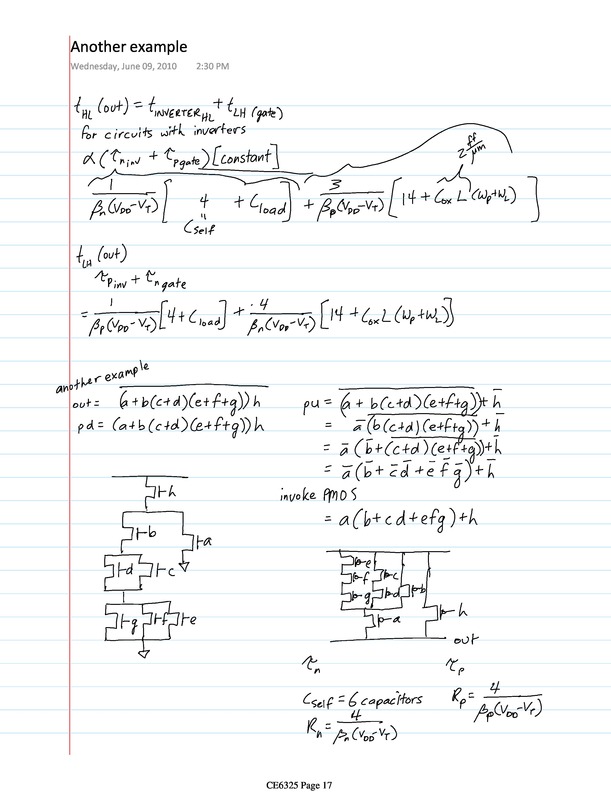 Another example
Wednesday, June 09, 2010 2:30 PM
t_HL (out) = t_INVERTER_HL + t_LH (gate)
for circuits with inverters
α(τ_n inv + τ_p gate)[constant]
2 ff/μm
1/(β_n(V_DD-V_T)) [4 + C_load] + 3/(β_p(V_DD-V_T)) [14 + C_ox L (W_p+W_L)]
=
C_self
t_LH (out)
τ_p inv + τ_n gate
= 1/(β_p(V_DD-V_T)) [4 + C_load] + 4/(β_n(V_DD-V_T)) [14 + C_ox L (W_p+W_L)]
another example
out = \overline{(a+b(c+d)(e+f+g))h}
pd = (a+b(c+d)(e+f+g))h
pu = \overline{(a+b(c+d)(e+f+g))} + h̄
= ā \overline{(b(c+d)(e+f+g))} + h̄
= ā (b̄ + \overline{(c+d)(e+f+g)}) + h̄
= ā (b̄ + c̄ d̄ + ē f̄ ḡ) + h̄
invoke PMOS
= a(b+cd+efg)+h
h
b
a
d
c
g
f
e
e
f
c
g
d
b
a
h
out
τ_n
τ_p
C_self = 6 capacitors
R_n = 4/(β_n(V_DD-V_T))
R_p = 4/(β_p(V_DD-V_T))
CE6325 Page 17